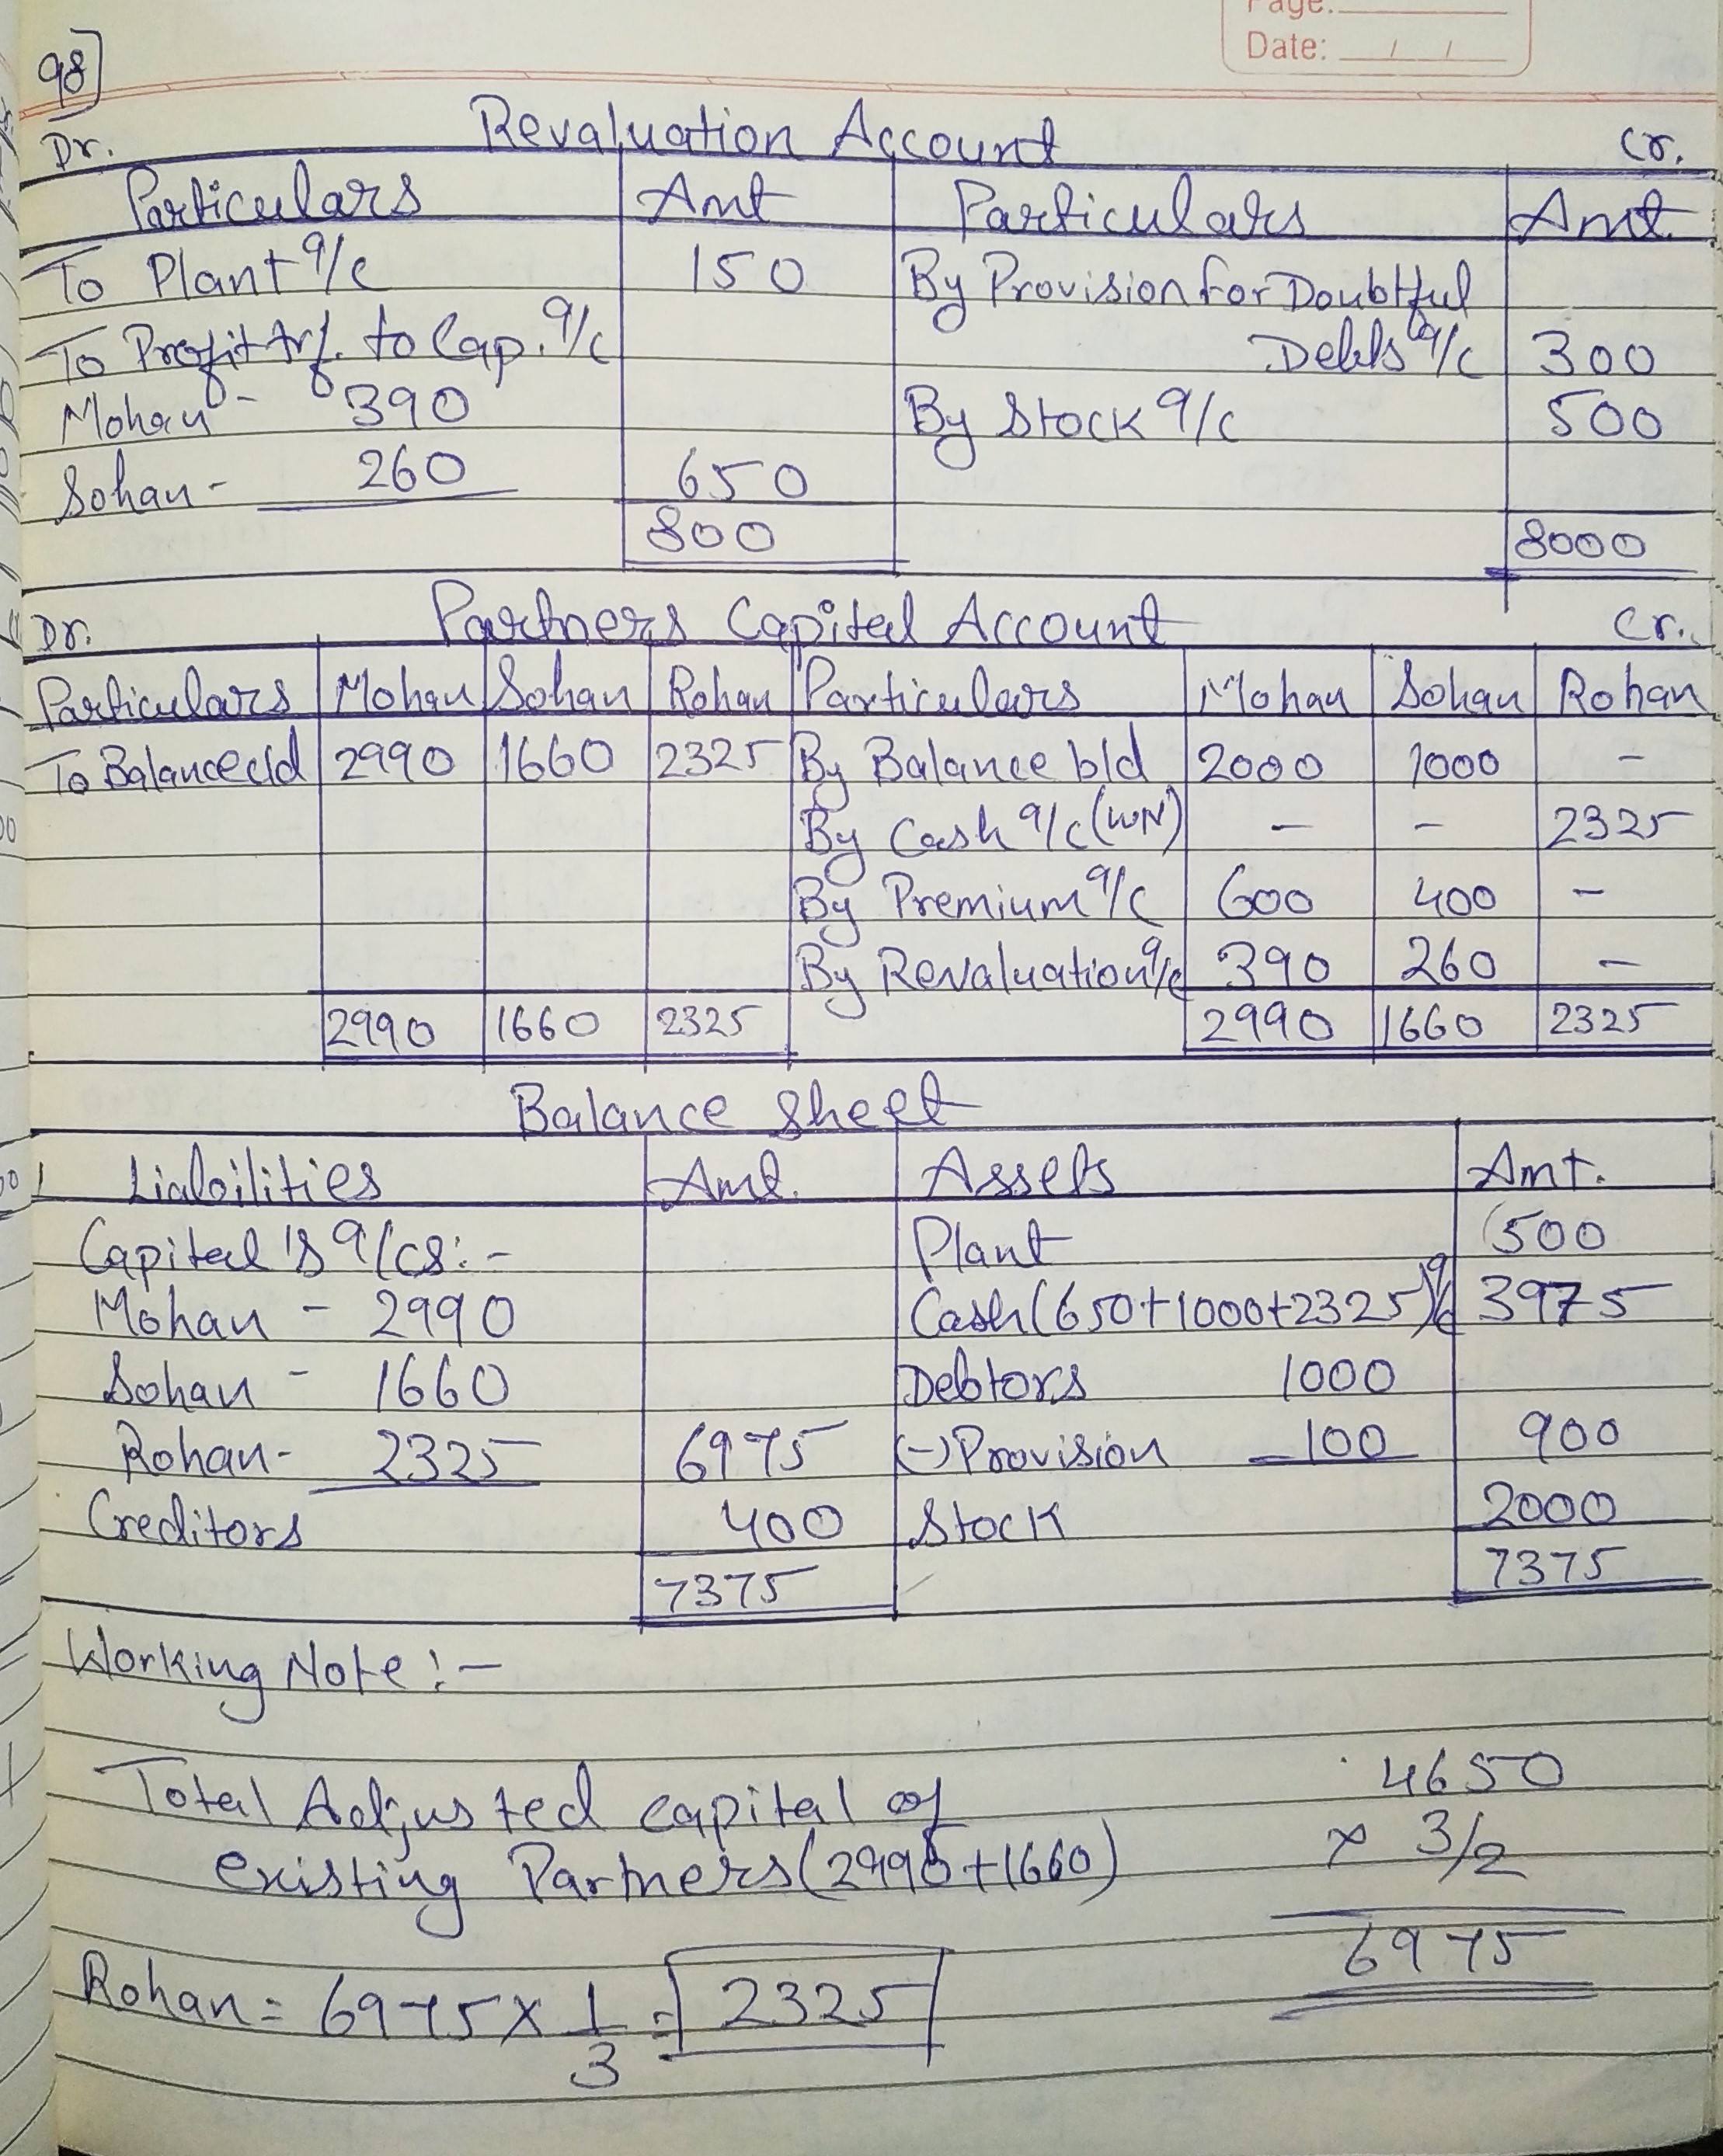 Page:
Date: / /
98]
Revaluation Account
Dr. Cr.
Particulars Amt Particulars Amt.
To Plant a/c 150 By Provision for Doubtful
Debts a/c 300
To Profit trf. to Cap. a/c
Mohan - 390 By Stock a/c 500
Sohan - 260 650
800 8000
Partners Capital Account
Dr. Cr.
Particulars Mohan Sohan Rohan Particulars Mohan Sohan Rohan
To Balance c/d 2990 1660 2325 By Balance b/d 2000 1000 -
By Cash a/c (WN) - - 2325
By Premium a/c 600 400 -
By Revaluation a/c 390 260 -
2990 1660 2325 2990 1660 2325
Balance Sheet
Liabilities Amt. Assets Amt.
Capital's a/cs:- Plant 500
Mohan - 2990 Cash (650+1000+2325) a/c 3975
Sohan - 1660 Debtors 1000
Rohan - 2325 6975 (-) Provision 100 900
Creditors 400 Stock 2000
7375 7375
Working Note :-
Total Adjusted capital of 4650
existing Partners (2990+1660) × 3/2
6975
Rohan = 6975 × 1/3 = 2325